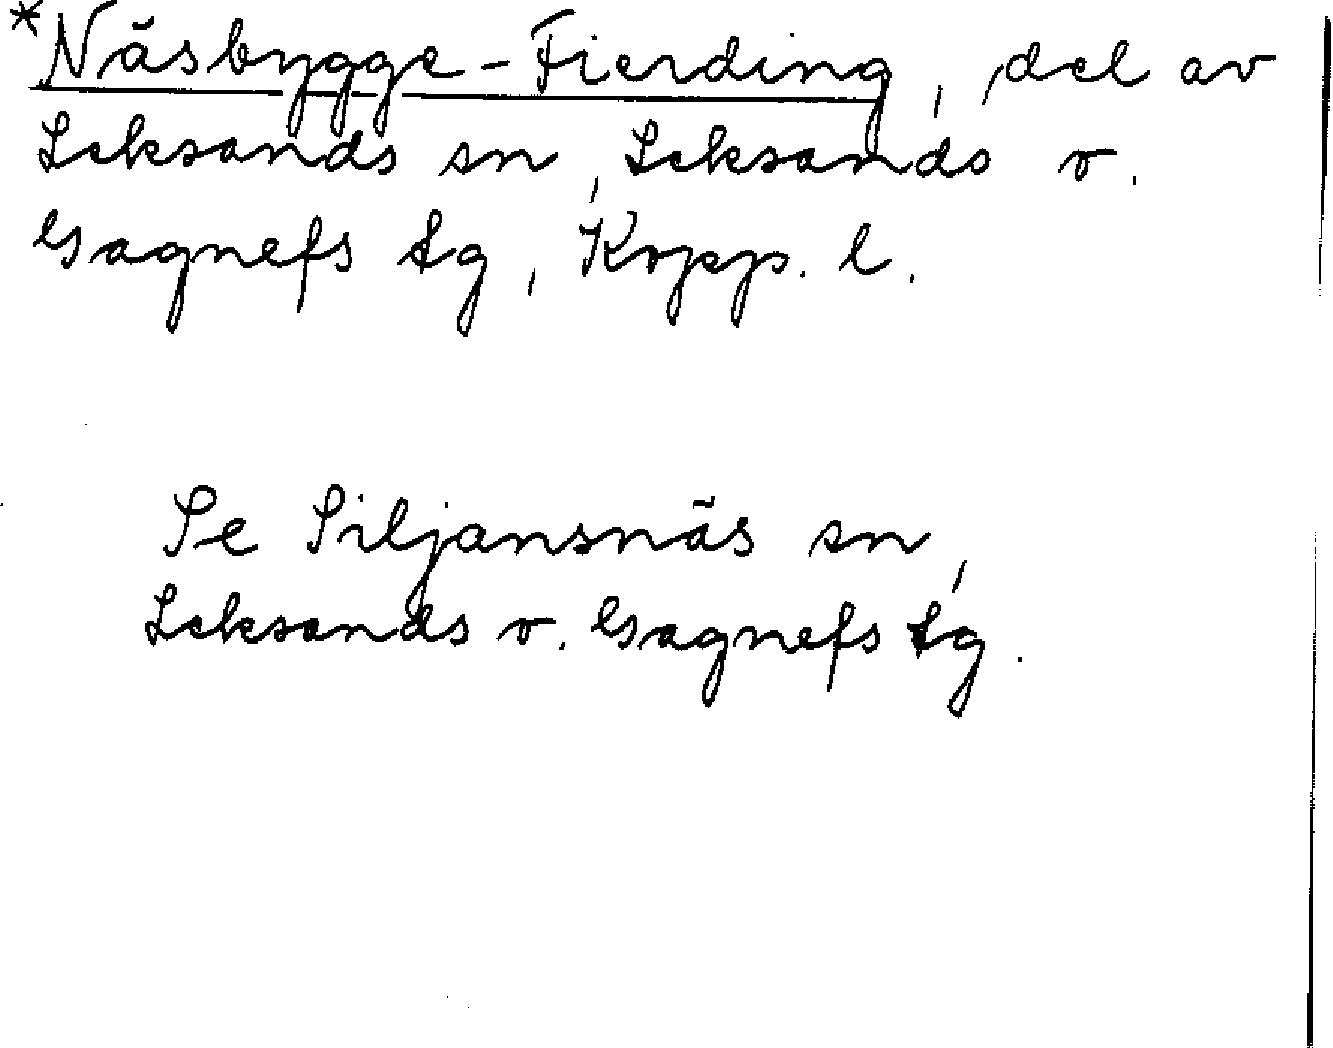 *Näsbygge-Fierding, del av
Leksands sn, Leksands o.
Gagnefs tg, Kopp. l.
Se Siljansnäs sn,
Leksands o. Gagnefs tg.